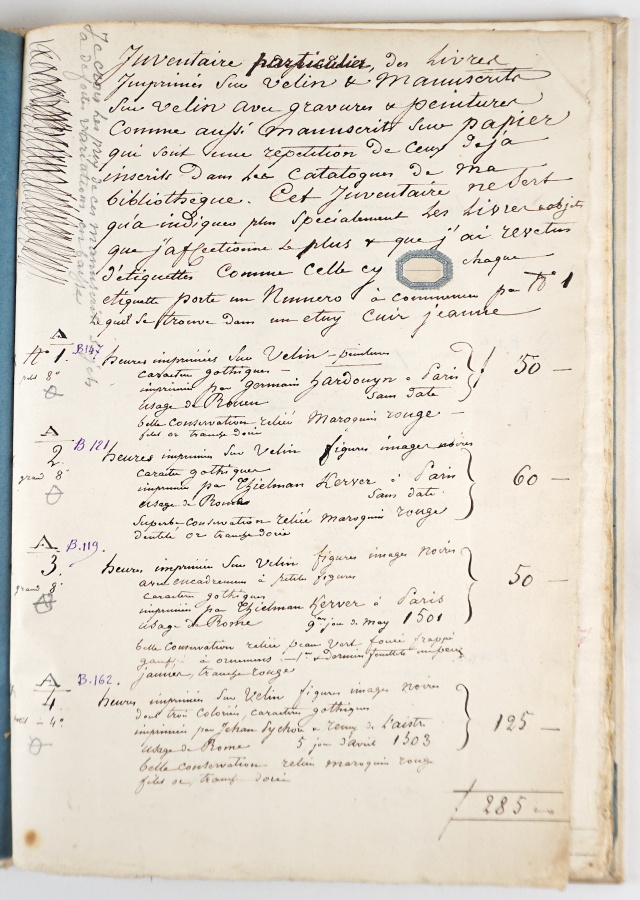 Inventaire particulier, des Livres
Imprimés Sur Velin & Manuscrits
Sur velin avec gravures & peintures
Comme aussi manuscrits sur papier
qui sont une repetition de Ceux deja
inscrits dans les Catalogues de ma
bibliotheque. Cet Inventaire ne Sert
qu'a indiquer plus Specialement les Livres & objets
que j'affectionne le plus & que j'ai revetus
d'etiquettes Comme Celle cy chaque
etiquette porte un Numero à commencer par N° 1
Lequel Se trouve dans un etuy Cuir jeaune
Je crois les prix de ces manuscrits
A
N° 1. B147
petit 8°
heures imprimées Sur Velin - peintures
caractere gothiques -
imprimée par Germain hardouyn à Paris
usage de Rouen Sans date
belle Conservation, reliée Maroquin rouge -
filets or tranche dorée
50 -
A
2 B 121
grand 8°
heures imprimées Sur Velin figures images noires
caractere gothiques
imprimée par Thielman Kerver à Paris
usage de Rome Sans date
Superbe Conservation reliée maroquin rouge
dentelle or tranche dorée
60 -
A
3. B.119.
grand 8°
heures imprimée Sur Velin figures images Noires
avec encadremens à petites figures
caractere gothiques
imprimées par Thielman Kerver à Paris
usage de Rome 9me jour de may 1501
belle Conservation reliée peau Vert foncé frappé
à ornemens -
jaunes, tranche rouge
50 -
A
4 B.162.
- 4°
heures imprimées Sur Velin figures images Noires
dont trois Coloriées, caractere gothiques
imprimée par Jehan Pychore & remy de Laistre
usage de Rome 5 jour d'avril 1503
belle Conservation reliée maroquin rouge
filets or, tranche dorée
125 -
285 -